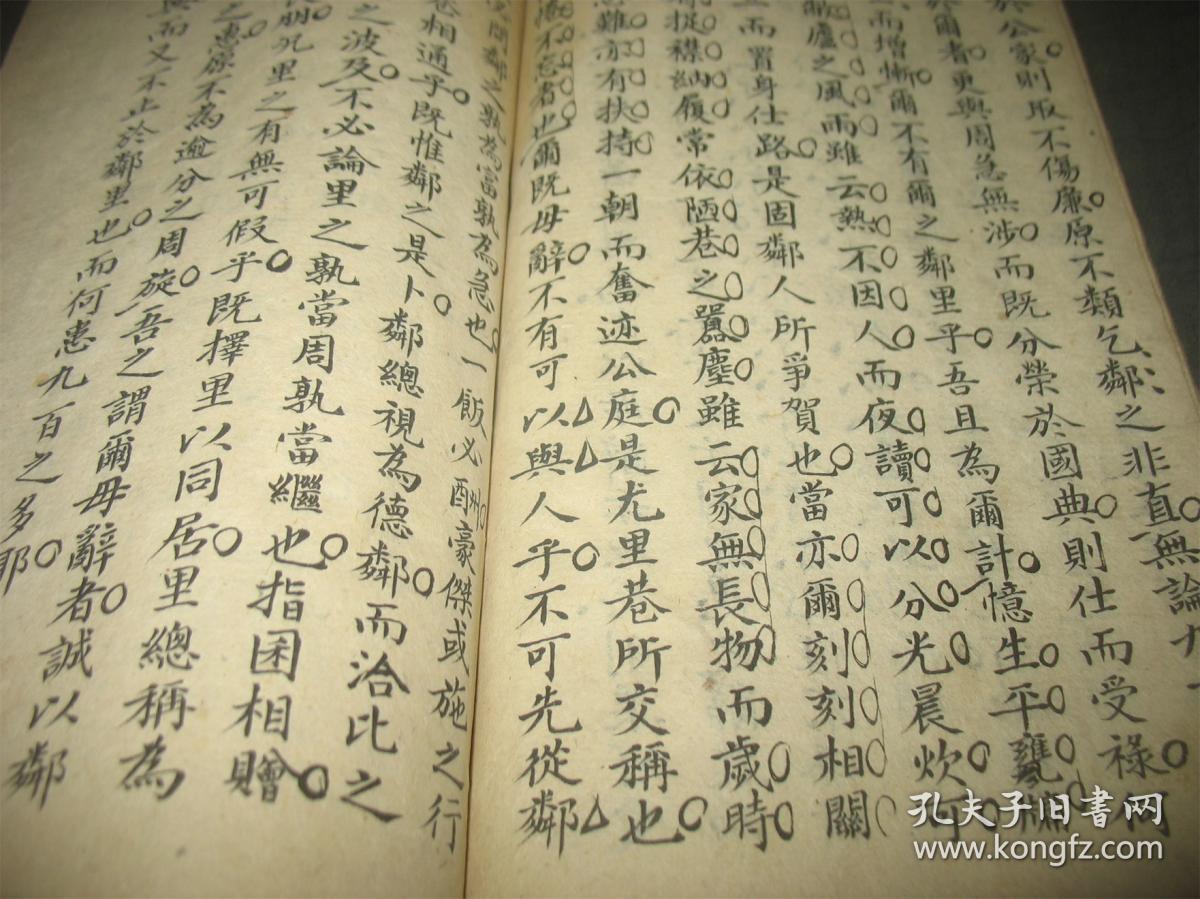 於公家則取不傷廉原不類乞鄰之非直無論九
爾者更與周急無涉而既分榮於國典則仕而受祿何
而增慚爾不有爾之鄰里乎吾且為爾計憶生平甕牖
廬之風雨雖云熱不因人而夜讀可以分光晨炊可
而置身仕路是固鄰人所爭賀也當亦爾刻刻相關
捉襟納履常依陋巷之囂塵雖云家無長物而歲時
難亦有扶持一朝而奮迹公庭是尤里巷所交稱也
不忘者也爾既毋辭不有可以與人乎不可先從鄰
問鄰之孰為富孰為急也一飯必酬豪傑或施之行
相通乎既惟鄰之是卜鄰總視為德鄰而洽比之
之波及不必論里之孰當周孰當繼也指囷相贈
朋況里之有無可假乎既擇里以同居里總稱為
之惠原不為逾分之周旋吾之謂爾毋辭者誠以鄰
而又不止於鄰里也而何患九百之多耶
孔夫子旧书网
www.kongfz.com